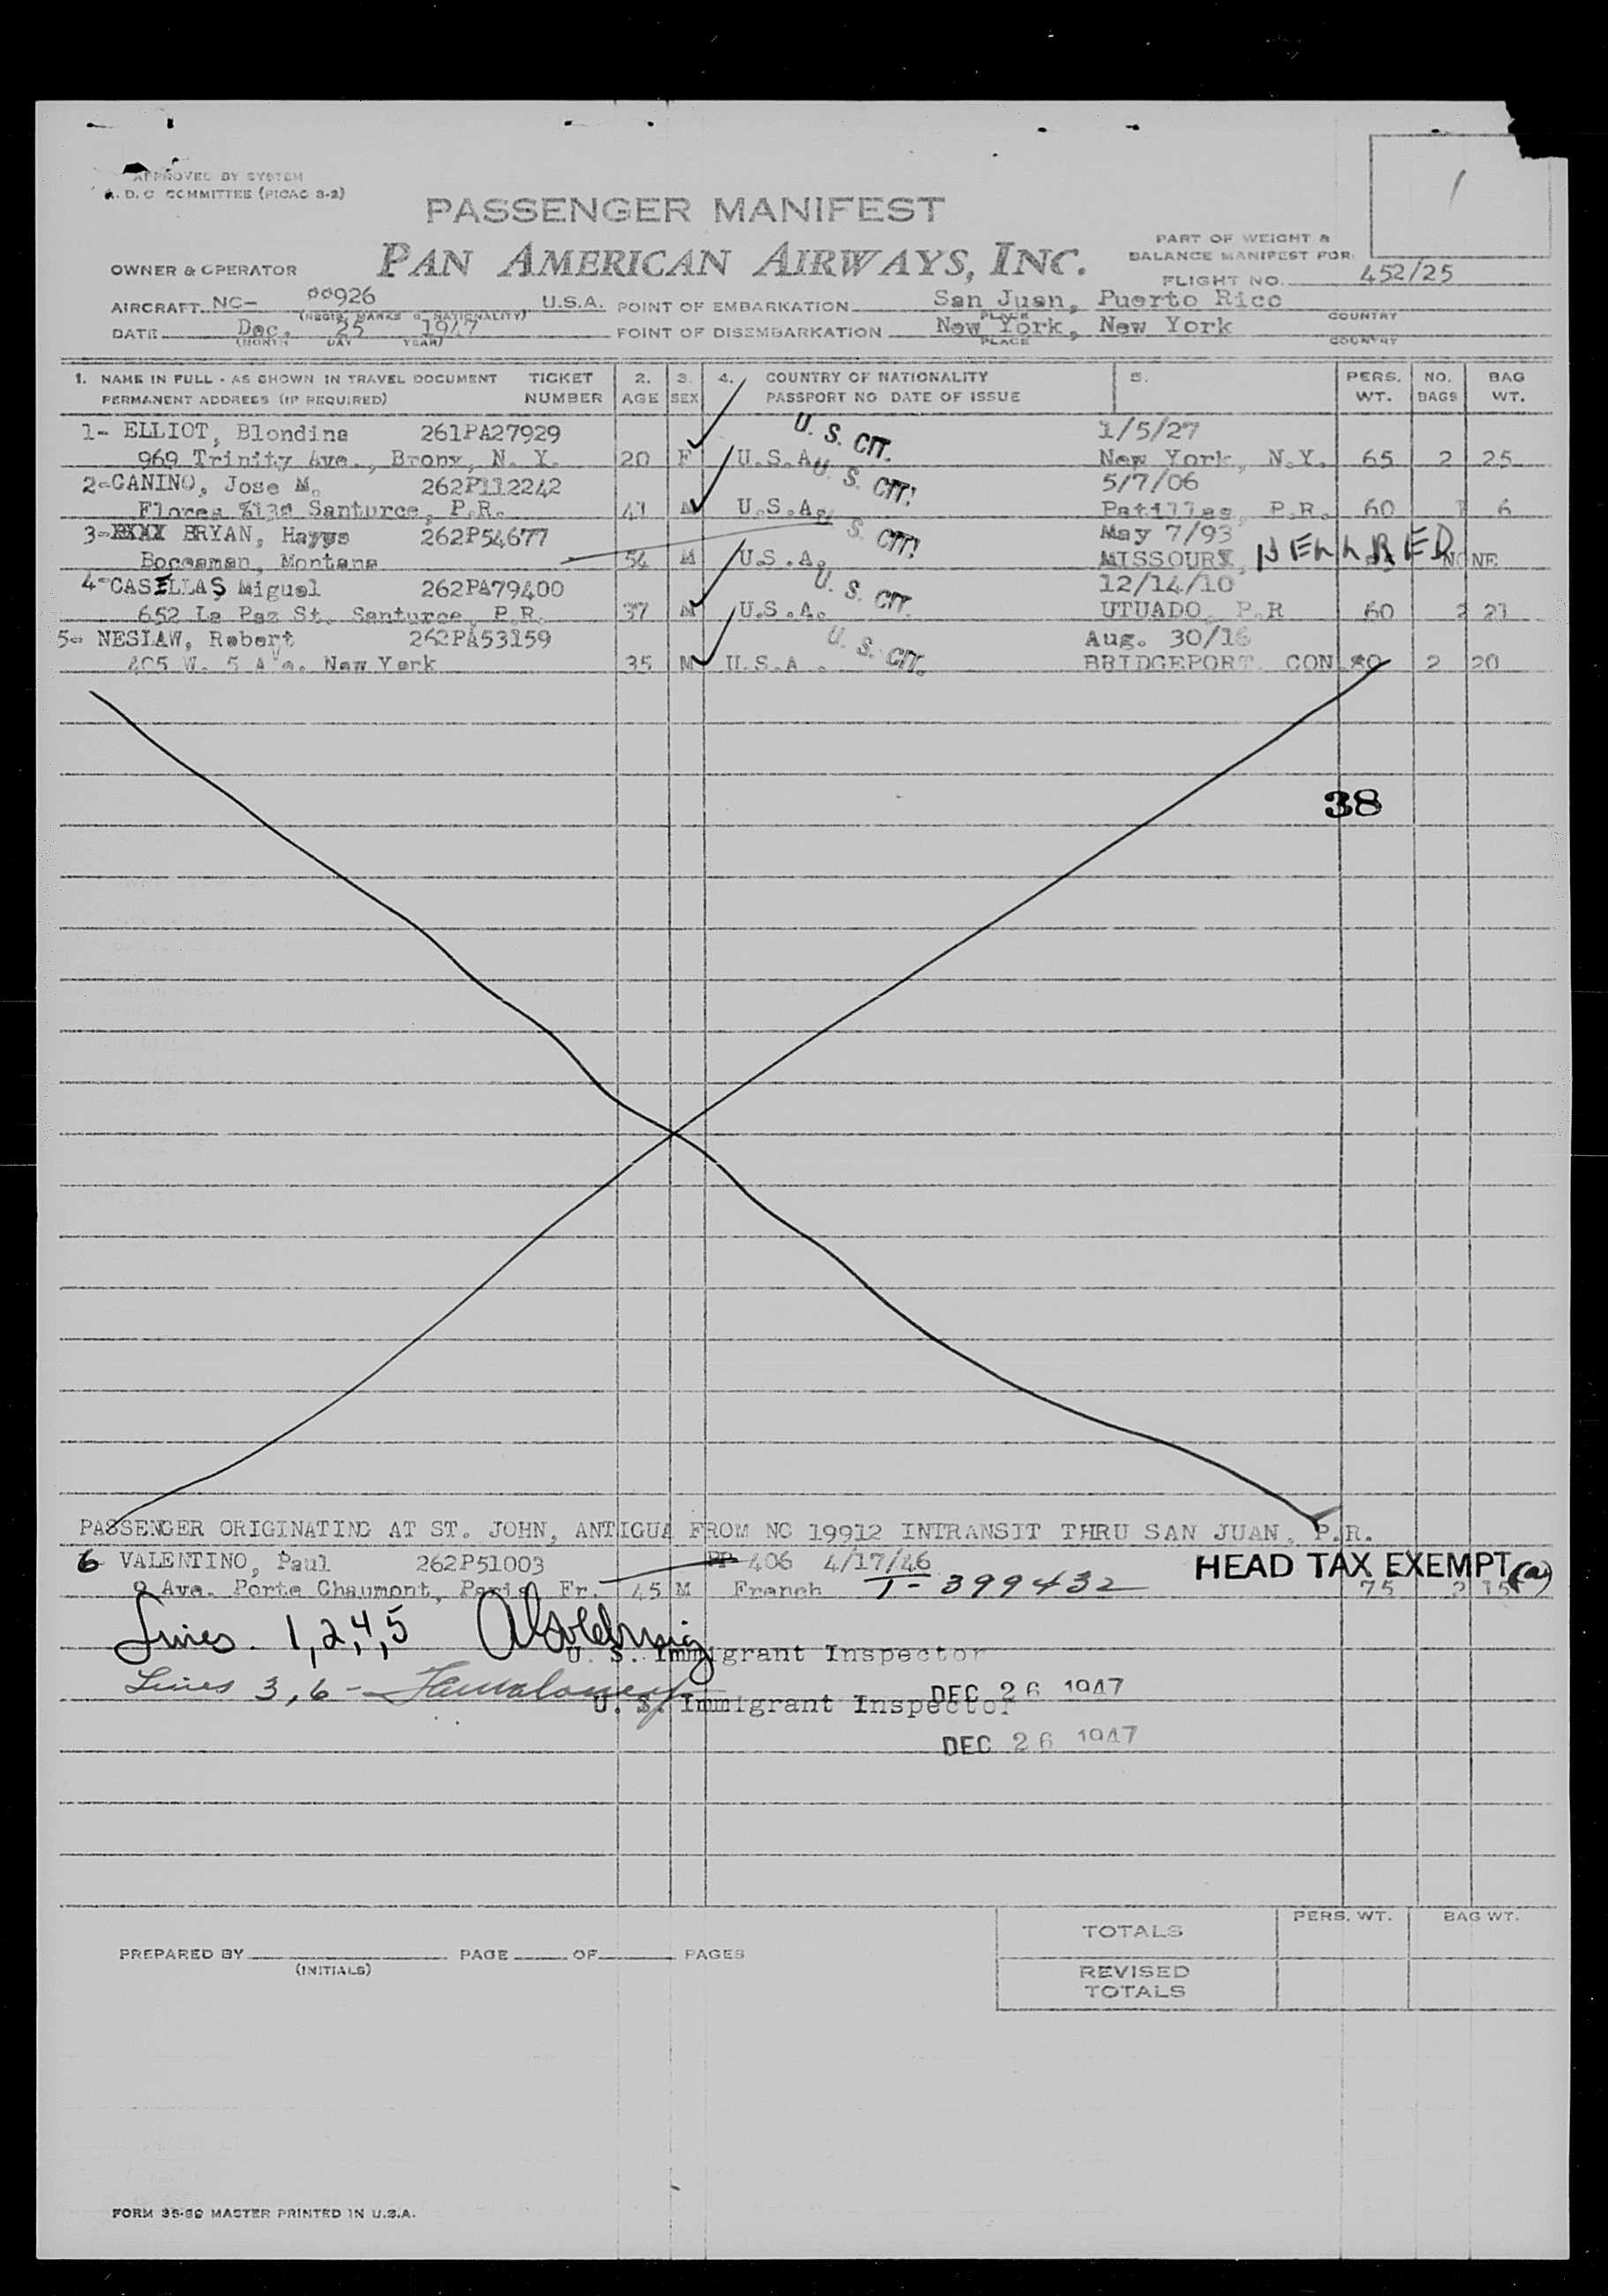 1
APPROVED BY SYSTEM
A. D. C COMMITTEE (PICAO S-2)
PASSENGER MANIFEST
PART OF WEIGHT &
BALANCE MANIFEST FOR:
OWNER & OPERATOR
PAN AMERICAN AIRWAYS, INC.
FLIGHT NO. 452/25
AIRCRAFT NC- 00926 U.S.A. POINT OF EMBARKATION San Juan, Puerto Rico
(REGIS. MARKS & NATIONALITY) PLACE COUNTRY
DATE Dec. 25 1947 POINT OF DISEMBARKATION New York, New York
(MONTH DAY YEAR) PLACE COUNTRY
1. NAME IN FULL - AS SHOWN IN TRAVEL DOCUMENT TICKET 2. 3. 4. COUNTRY OF NATIONALITY 5. PERS. NO. BAG
PERMANENT ADDRESS (IF REQUIRED) NUMBER AGE SEX PASSPORT NO DATE OF ISSUE WT. BAGS WT.
1- ELLIOT, Blondina 261PA27929 U. S. CIT. 1/5/27
969 Trinity Ave., Bronx, N. Y. 20 F U.S.A. New York, N.Y. 65 2 25
2-CANINO, Jose M. 262P112242 U. S. CIT. 5/7/06
Flores Santurce, P.R. 41 M U.S.A. Patillas, P.R. 60 1 6
3- BRYAN, Hayys 262P54677 U. S. CIT. May 7/93
Boceaman, Montana 54 M U.S.A. MISSOURI, NONE
4-CASELLAS Miguel 262PA79400 U. S. CIT. 12/14/10
652 La Paz St. Santurce, P.R. 37 M U.S.A. UTUADO, P.R 60 2 21
5- NESLAW, Robert 262PA53159 U. S. CIT. Aug. 30/16
405 W. 5 Ave. New York 35 M U.S.A. BRIDGEPORT. CON 80 2 20
38
PASSENGER ORIGINATING AT ST. JOHN, ANTIGUA FROM NC 19912 INTRANSIT THRU SAN JUAN, P.R.
6- VALENTINO, Paul 262P51003 PP 406 4/17/46 HEAD TAX EXEMPT (a)
9 Ave. Porte Chaumont, Paris, Fr. 45 M French T- 399432 75 2 15
Lines. 1,2,4,5
U. S. Immigrant Inspector
Lines 3,6- DEC 26 1947
U. S. Immigrant Inspector
DEC 26 1947
TOTALS PERS. WT. BAG WT.
PREPARED BY PAGE OF PAGES
(INITIALS)
REVISED
TOTALS
FORM 35-90 MASTER PRINTED IN U.S.A.